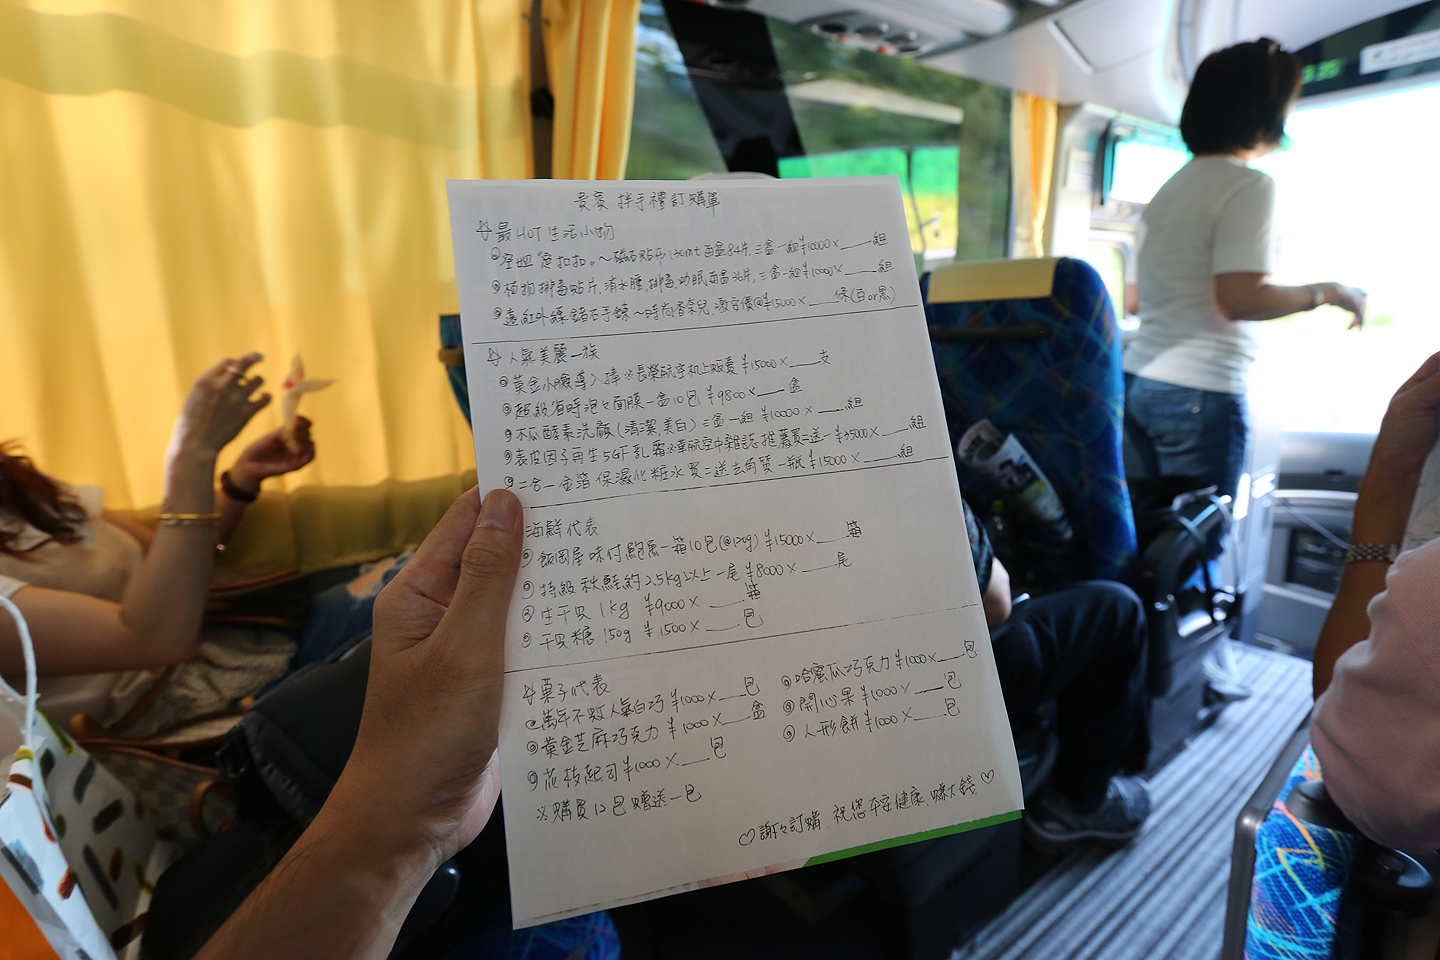 貴賓 拌手禮訂購單
☆最HOT生活小物
痠痛" 扣扣"～磁石貼布130mt每盒84片,三盒一組¥10000×____組
植物排毒貼片,消水腫,排毒,助眠,每盒36片,三盒一組¥10000×____組
遠紅外線鍺石手鍊～時尚香奈兒,激安價@¥15000×____條(白or黑)
☆人氣美麗一族
黃金小臉導入棒※長榮航空机上販賣¥15000×____支
超級省時泡々面膜一盒10包¥9800×____盒
木瓜酵素洗顏(清潔,美白)三盒一組¥10000×____組
表皮因子再生5GF乳霜※華航空中雜誌推薦買二送一¥25000×____組
二合一金箔保濕化粧水買二送去角質一瓶¥15000×____組
海鮮代表
飯岡屋味付鮑魚一箱10包(@120g)¥15000×____箱
特級秋鮭約2.5kg以上一尾¥8000×____尾
生干貝1kg ¥9000×____箱
干貝糖150g ¥1500×____包
☆菓子代表
萬年不敗人氣白巧¥1000×____包
黃金芝麻巧克力¥1000×____盒
花枝起司¥1000×____包
※購買10包贈送一包
哈蜜瓜巧克力¥1000×____包
開心果¥1000×____包
人形餅¥1000×____包
♡謝々訂購.祝您平安健康.賺大錢♡